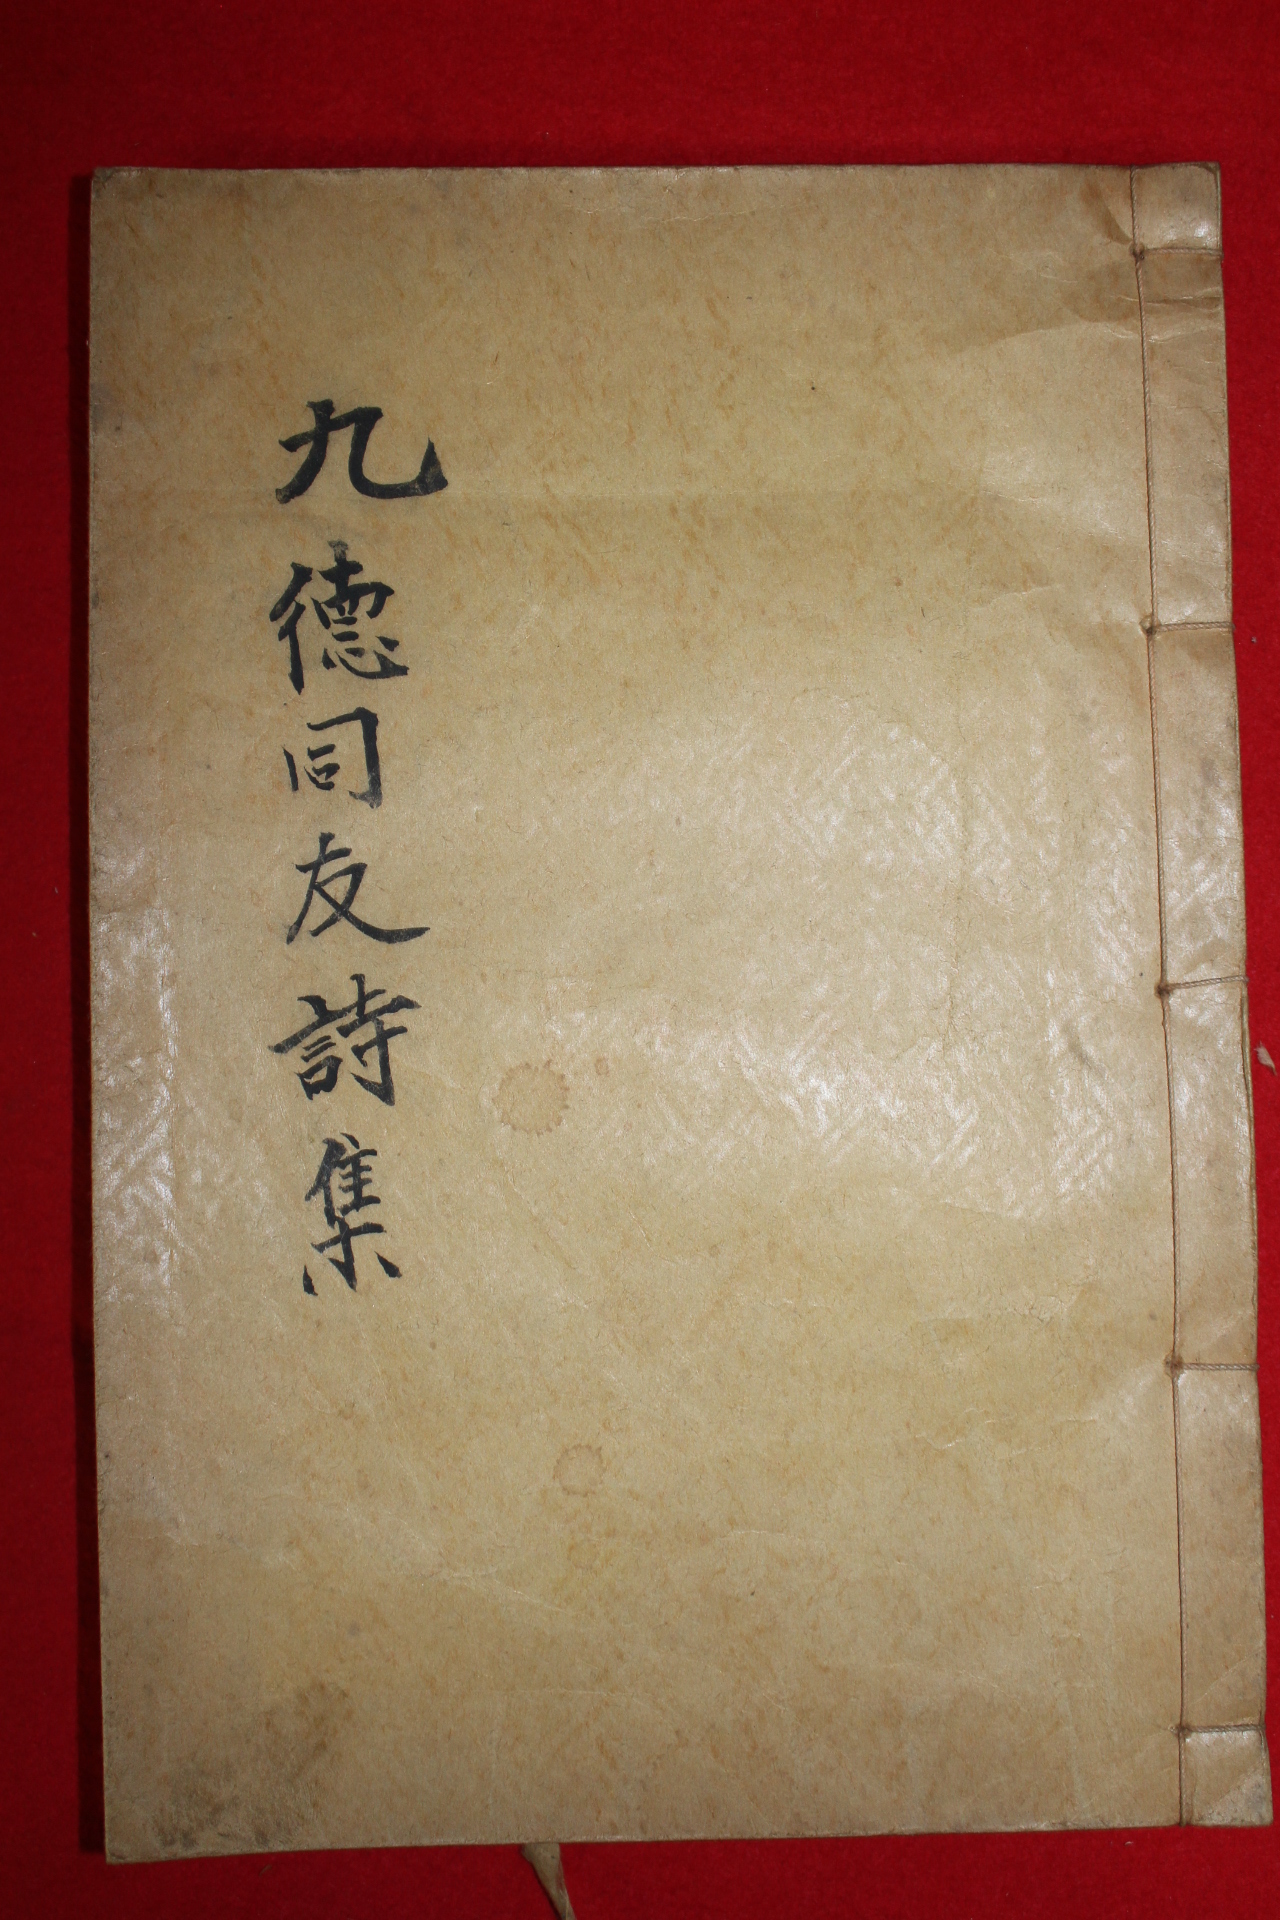 九德同友詩集